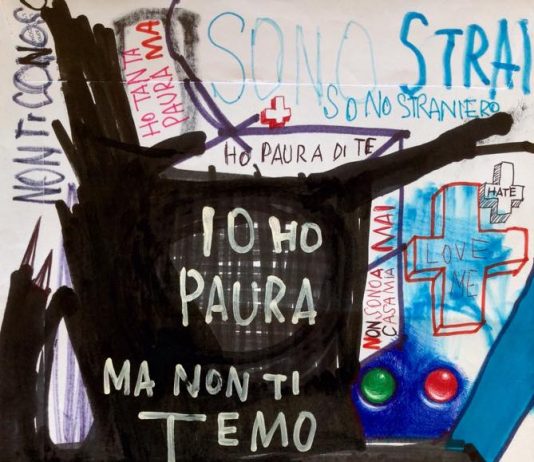 NON TI CONOSC
HO TANTA
PAURA MA
SONO STRAI
SONO STRANIERO
HO PAURA DI TE
HATE
LOVE
ME
NON SONO A
CASA MIA MAI
IO HO
PAURA
MA NON TI
TEMO